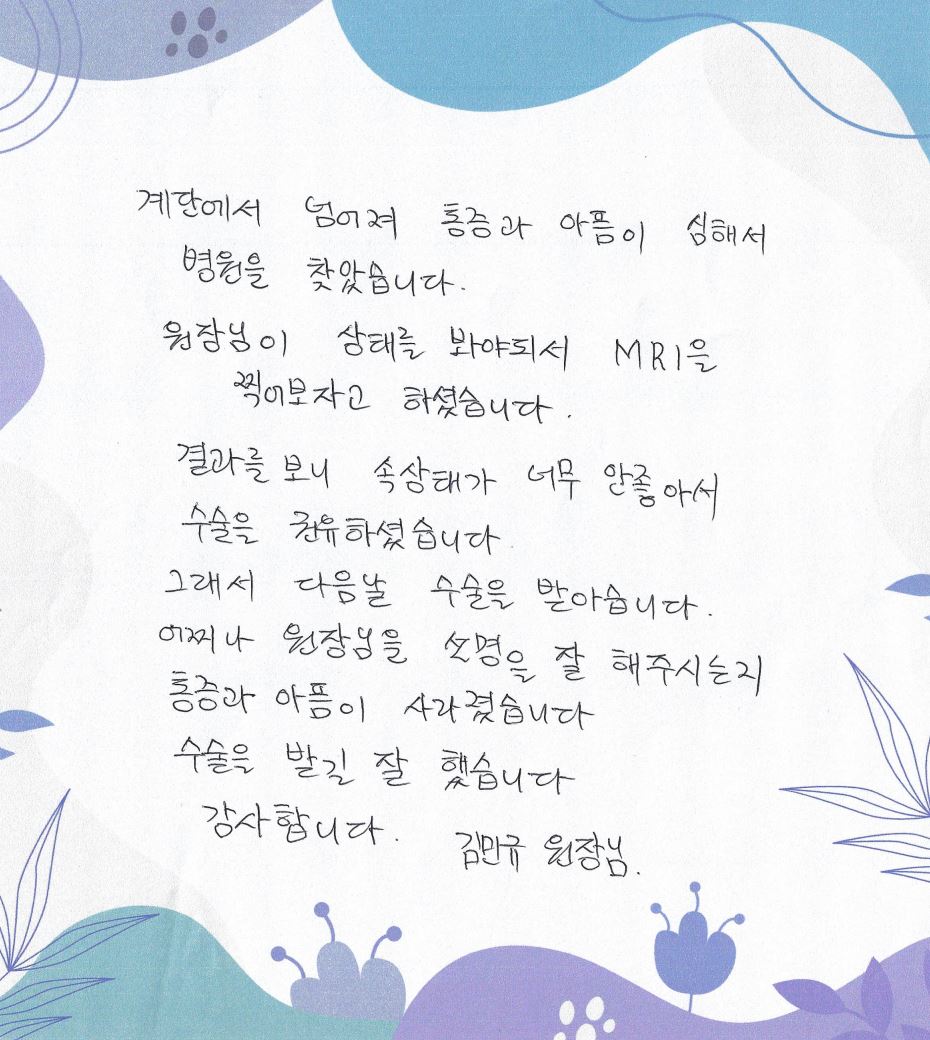 계단에서 넘어져 통증과 아픔이 심해서
병원을 찾았습니다.
원장님이 상태를 봐야되서 MRI을
찍어보자고 하셨습니다.
결과를 보니 속상태가 너무 안좋아서
수술을 권유하셨습니다
그래서 다음날 수술을 받아습니다.
어찌나 원장님을 설명을 잘 해주시는지
통증과 아픔이 사라졌습니다
수술을 받길 잘 했습니다
감사합니다.
김민규 원장님.